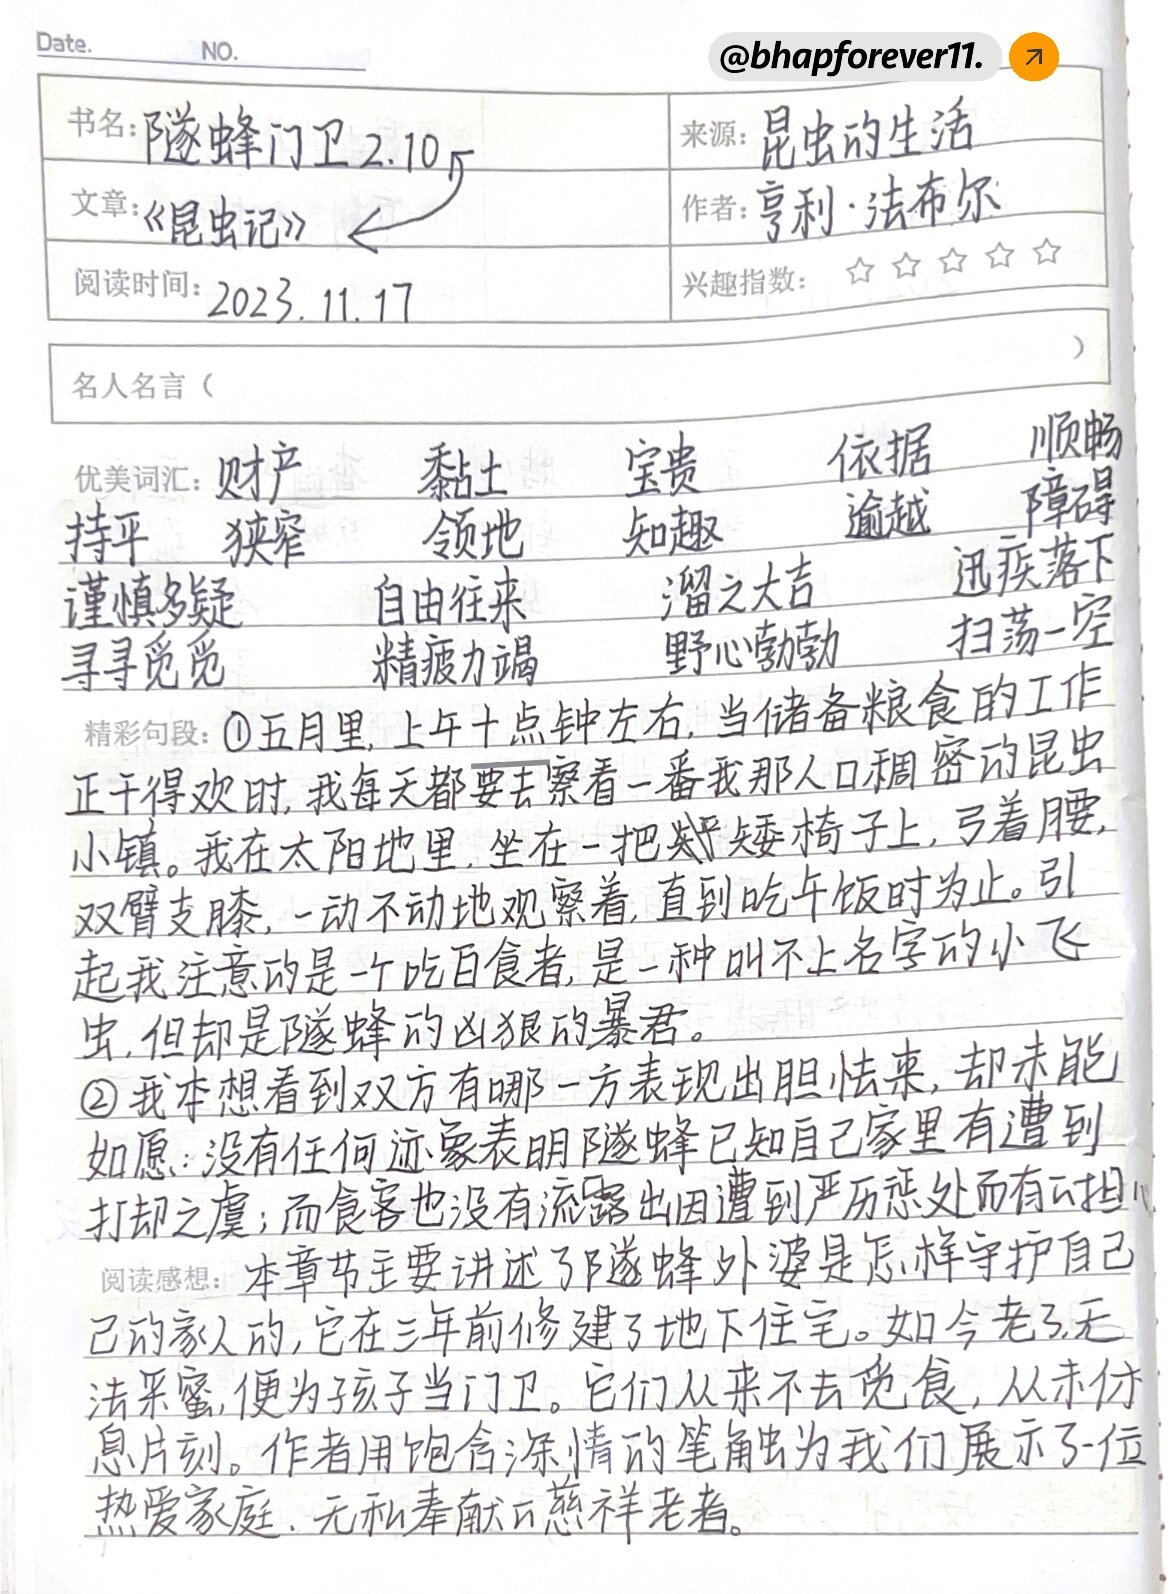 Date. NO.
@bhapforever11.
书名: 隧蜂门卫2.10
来源: 昆虫的生活
文章: 《昆虫记》
作者: 亨利·法布尔
阅读时间: 2023.11.17
兴趣指数: ☆ ☆ ☆ ☆ ☆
名人名言( )
优美词汇: 财产 黏土 宝贵 依据 顺畅
持平 狭窄 领地 知趣 逾越 障碍
谨慎多疑 自由往来 溜之大吉 迅疾落下
寻寻觅觅 精疲力竭 野心勃勃 扫荡一空
精彩句段: ①五月里,上午十点钟左右,当储备粮食的工作
正干得欢时,我每天都要去察看一番我那人口稠密的昆虫
小镇。我在太阳地里,坐在一把矮椅子上,弓着腰,
双臂支膝,一动不动地观察着,直到吃午饭时为止。引
起我注意的是一个吃白食者,是一种叫不上名字的小飞
虫,但却是隧蜂的凶狠的暴君。
②我本想看到双方有哪一方表现出胆怯来,却未能
如愿:没有任何迹象表明隧蜂已知自己家里有遭到
打却之虞;而食客也没有流露出因遭到严厉惩处而有的担心
阅读感想: 本章节主要讲述了隧蜂外婆是怎样守护自己
己的家人的,它在三年前修建了地下住宅。如今老了,无
法采蜜,便为孩子当门卫。它们从来不去觅食,从未休
息片刻。作者用饱含深情的笔触为我们展示了一位
热爱家庭、无私奉献的慈祥老者。